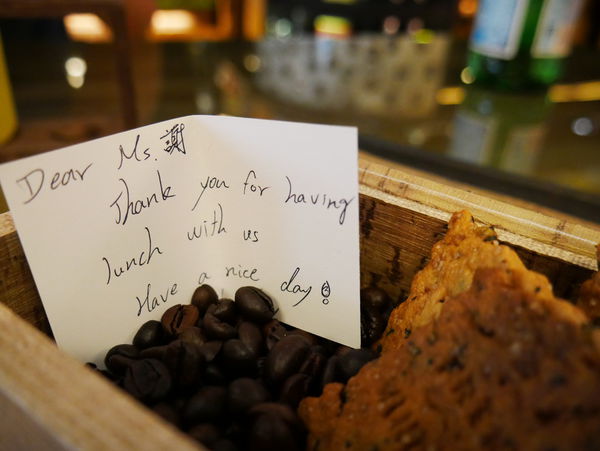 Dear Ms. 謝
Thank you for having
lunch with us
Have a nice day!